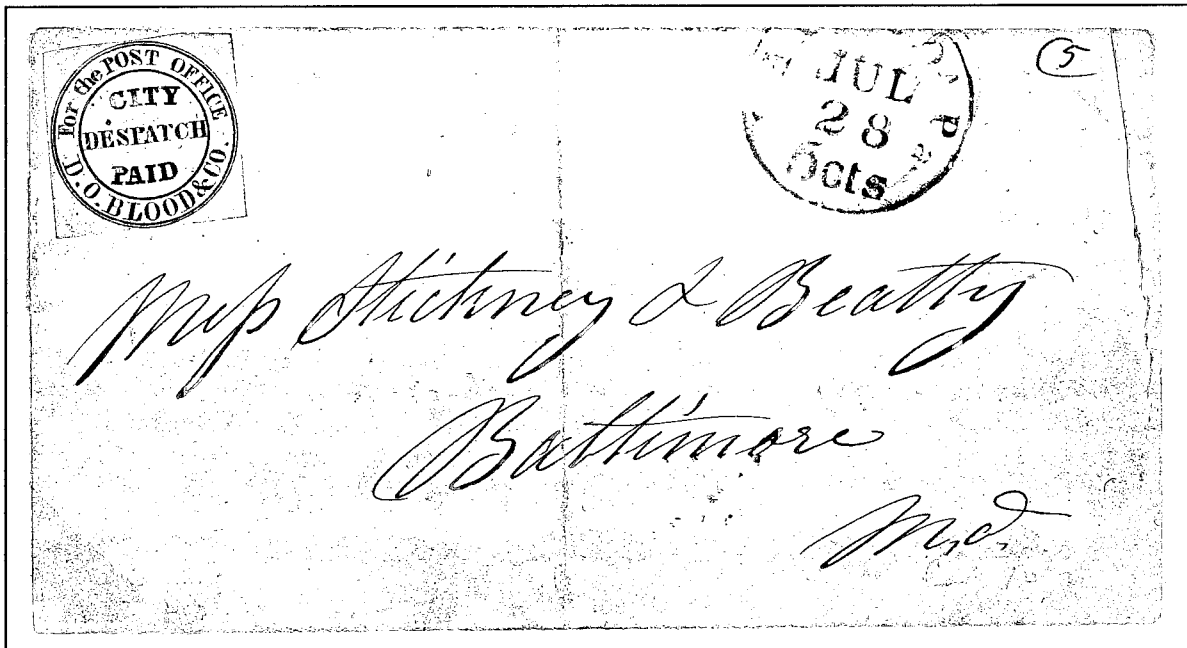 For the POST OFFICE
CITY
DESPATCH
PAID
D.O. BLOOD & CO.
JUL
28
Pa
cts
5
Mess Stickney & Beatty
Baltimore
Md.